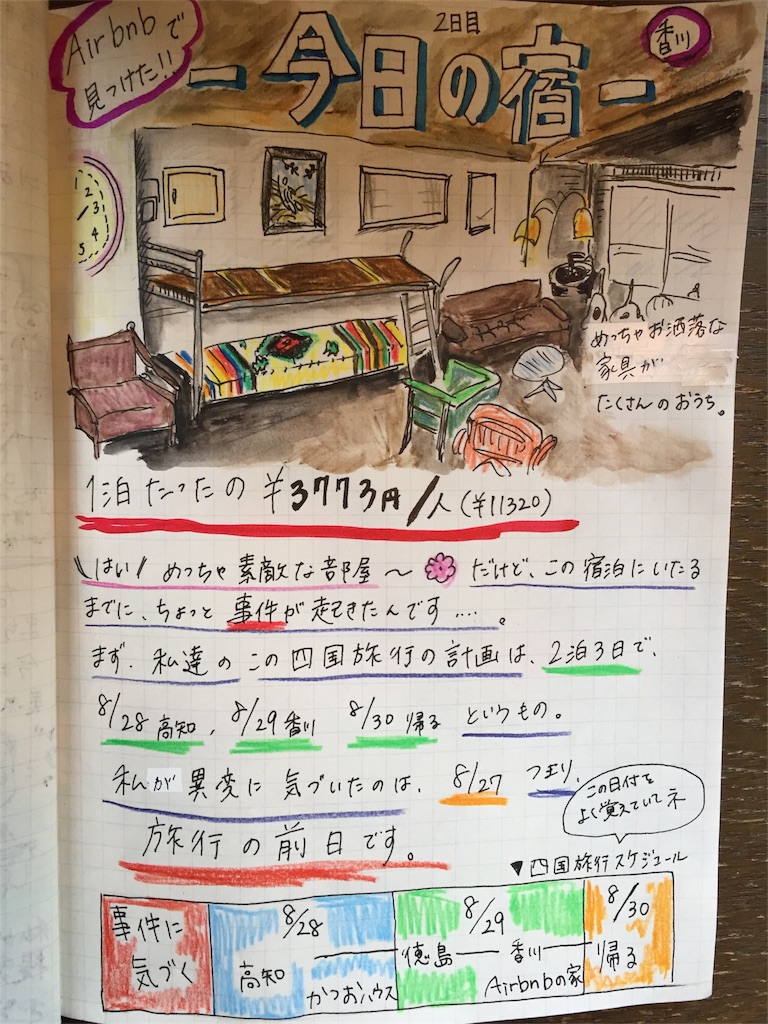 Airbnbで
見つけた!!
2日目
香川
ー今日の宿ー
1
2
3
4
5
めっちゃお洒落な
家具が
たくさんのおうち。
1泊たったの¥3773円/人(¥11320)
\はい/ めっちゃ素敵な部屋〜 だけど、この宿泊にいたる
までに、ちょっと事件が起きたんです….。
まず、私達のこの四国旅行の計画は、2泊3日で、
8/28 高知、8/29 香川 8/30 帰る というもの。
私が異変に気づいたのは、8/27 つまり、
この日付を
よく覚えていてネ
旅行の前日です。
▼四国旅行スケジュール
事件に
気づく
8/28
高知
かつおハウス
8/29
徳島ー香川
Airbnbの家
8/30
帰る